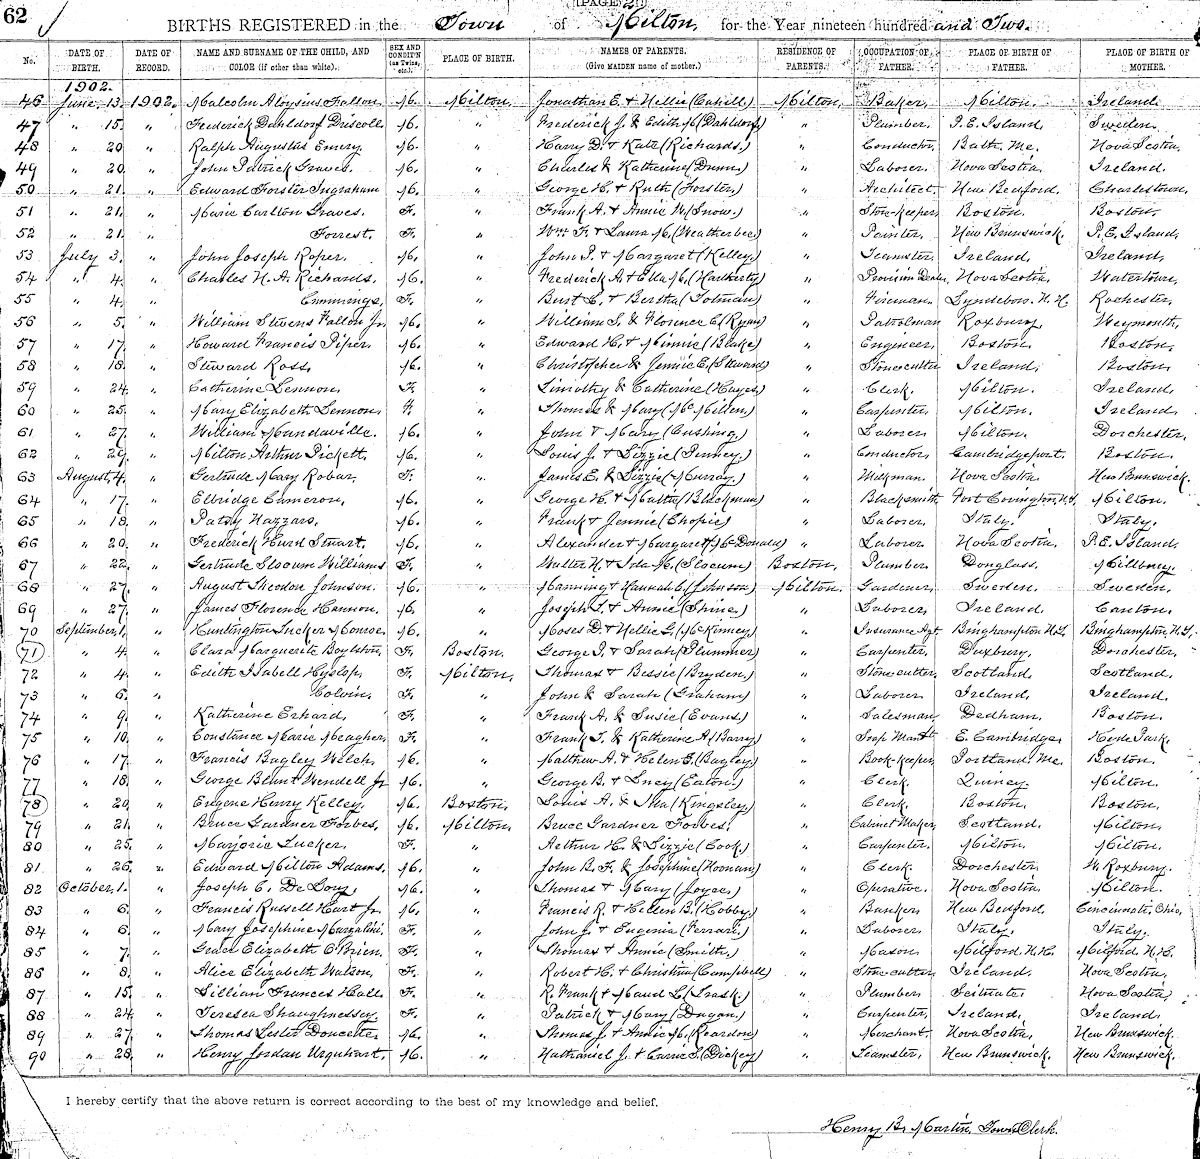 62
[PAGE 2]
BIRTHS REGISTERED in the Town of Milton, for the Year nineteen hundred and Two.
No. DATE OF BIRTH. DATE OF RECORD. NAME AND SURNAME OF THE CHILD, AND COLOR (if other than white). SEX AND CONDIT'N (as Twins, etc.). PLACE OF BIRTH. NAMES OF PARENTS. (Give MAIDEN name of mother.) RESIDENCE OF PARENTS. OCCUPATION OF FATHER. PLACE OF BIRTH OF FATHER. PLACE OF BIRTH OF MOTHER.
1902.
46 June 13. 1902. Malcolm Aloysius Fallon M. Milton. Jonathan E. & Nellie (Cahill) Milton. Baker. Milton. Ireland.
47 " 15. " Frederick Dahldorf Driscoll M. " Frederick J. & Edith M. (Dahldorf) " Plumber. P.E. Island. Sweden.
48 " 20 " Ralph Augustus Emery. M. " Harry D. & Kate (Richards.) " Conductor. Bath, Me. Nova Scotia.
49 " 20. " John Patrick Graves. M. " Charles & Katherine (Dunn) " Laborer. Nova Scotia. Ireland.
50 " 21. " Edward Forster Ingraham M. " George H. & Ruth (Forster) " Architect. New Bedford. Charlestown.
51 " 21. " Marie Carlton Graves. F. " Frank A. & Annie W. (Snow.) " Store-keeper Boston. Boston.
52 " 21. " Forrest. F. " Wm. F. & Laura M. (Weatherbee) " Painter. New Brunswick. P.E. Island.
53 July 3. " John Joseph Roper. M. " John P. & Margaret (Kelley) " Teamster. Ireland. Ireland.
54 " 4. " Charles H. A. Richards. M. " Frederick A. & Ella M. " Provision Dealer. Nova Scotia. Watertown.
55 " 4. " Cummings, F. " Burt L. & Bertha (Tolman) " Fireman. Lyndeboro. N.H. Rochester.
56 " 5. " William Stevens Fallon Jr. M. " William S. & Florence C. (Ryan) " Patrolman Roxbury. Weymouth.
57 " 17. " Howard Francis Piper. M. " Edward H. & Minnie (Blake) " Engineer. Boston. Boston.
58 " 18. " Steward Ross. M. " Christopher & Jennie E. (Steward) " Stonecutter Ireland. Boston.
59 " 24. " Catherine Lennon. F. " Timothy & Catherine (Hayes) " Clerk. Milton. Ireland.
60 " 25. " Mary Elizabeth Lennon. F. " Thomas & Mary (McMillen.) " Carpenter. Milton. Ireland.
61 " 27. " William Mandaville. M. " John & Mary (Cushing.) " Laborer. Milton. Dorchester.
62 " 29. " Milton Arthur Pickett. M. " Louis J. & Lizzie (Tenney) " Conductor. Cambridgeport. Boston.
63 August, 4. " Gertrude May Robar. F. " James E. & Lizzie (Murray) " Milkman. Nova Scotia. New Brunswick.
64 " 17. " Elbridge Cameron. M. " George H. & Mattie (Blackman) " Blacksmith Fort Covington, N.Y. Milton.
65 " 18. " Patsy Nazzaro. M. " Frank & Jennie (Chopie) " Laborer. Italy. Italy.
66 " 20. " Frederick Hurd Stuart. M. " Alexander & Margaret (McDonald) " Laborer Nova Scotia. P.E. Island.
67 " 22. " Gertrude Slocum Williams F. " Walter H. & Ida M. (Slocum) Boston. Plumber Douglass. Millbury.
68 " 27. " August Theodore Johnson. M. " Manning & Hannah C. (Johnson) Milton. Gardener. Sweden. Sweden.
69 " 27. " James Florence Hannon. M. " Joseph T. & Annie (Shine.) " Laborer. Ireland. Canton.
70 September, 1. " Huntington Tucker Monroe. M. " Moses D. & Nellie G. (McKinney) " Insurance Agt. Binghampton N.Y. Binghampton, N.Y.
71 " 4. " Clara Marguerite Boylston. F. Boston. George P. & Sarah (Plummer) " Carpenter. Duxbury. Dorchester.
72 " 4. " Edith Isabell Hyslop. F. Milton. Thomas & Bessie (Bryden.) " Stonecutter Scotland. Scotland.
73 " 6. " Colvin. F. " John & Sarah (Graham) " Laborer. Ireland. Ireland.
74 " 9. " Katherine Erhard. F. " Frank A. & Susie (Evans) " Salesman Dedham. Boston.
75 " 10. " Constance Marie Meagher. F. " Frank T. & Katherine A. (Barry) " Soap Manft. E. Cambridge. Hyde Park.
76 " 17. " Francis Bagley Welch. M. " Matthew A. & Helen E. (Bagley) " Book-keeper Portland, Me. Boston.
77 " 18. " George Blunt Wendell Jr. M. " George B. & Lucy (Eaton.) " Clerk. Quincy. Milton.
78 " 20. " Eugene Henry Kelley. M. Boston. Louis A. & Ina (Kingsley) " Clerk. Boston. Boston.
79 " 21. " Bruce Gardner Forbes. M. Milton. Bruce Gardner Forbes. " Cabinet Maker. Scotland. Milton.
80 " 25. " Marjorie Tucker. F. " Arthur H. & Lizzie (Cook) " Carpenter. Milton. Milton.
81 " 26. " Edward Milton Adams. M. " John B. F. & Josephine (Noonan) " Clerk. Dorchester W. Roxbury.
82 October, 1. " Joseph C. De Lory. M. " Thomas & Mary (Joyce.) " Operative. Nova Scotia. Milton.
83 " 6. " Francis Russell Hart Jr. M. " Francis R. & Hellen B. (Hobby) " Banker New Bedford. Cincinnati, Ohio.
84 " 6. " Mary Josephine F. " John J. & Eugenia (Ferrari.) " Laborer. Italy. Italy.
85 " 7. " Grace Elizabeth O'Brien. F. " Thomas & Annie (Smith.) " Mason. Milford N.H. Milford N.H.
86 " 8. " Alice Elizabeth Watson. F. " Robert H. & Christina (Campbell) " Stone-cutter Ireland. Nova Scotia.
87 " 15. " Lillian Frances Hall F. " R. Frank & Maud L. (Trask.) " Plumber Scituate. Nova Scotia.
88 " 24. " Teresea Shaughnessey. F. " Patrick & Mary (Dugan.) " Carpenter. Ireland. Ireland.
89 " 27. " Thomas Lester Doucette. M. " Thomas J. & Annie M. (Reardon) " Merchant. Nova Scotia. New Brunswick.
90 " 28. " Henry Jordan Urquhart. M. " Nathaniel J. & Carrie S. (Dickey) " Teamster. New Brunswick. New Brunswick.
I hereby certify that the above return is correct according to the best of my knowledge and belief.
Henry B. Martin, Town Clerk.